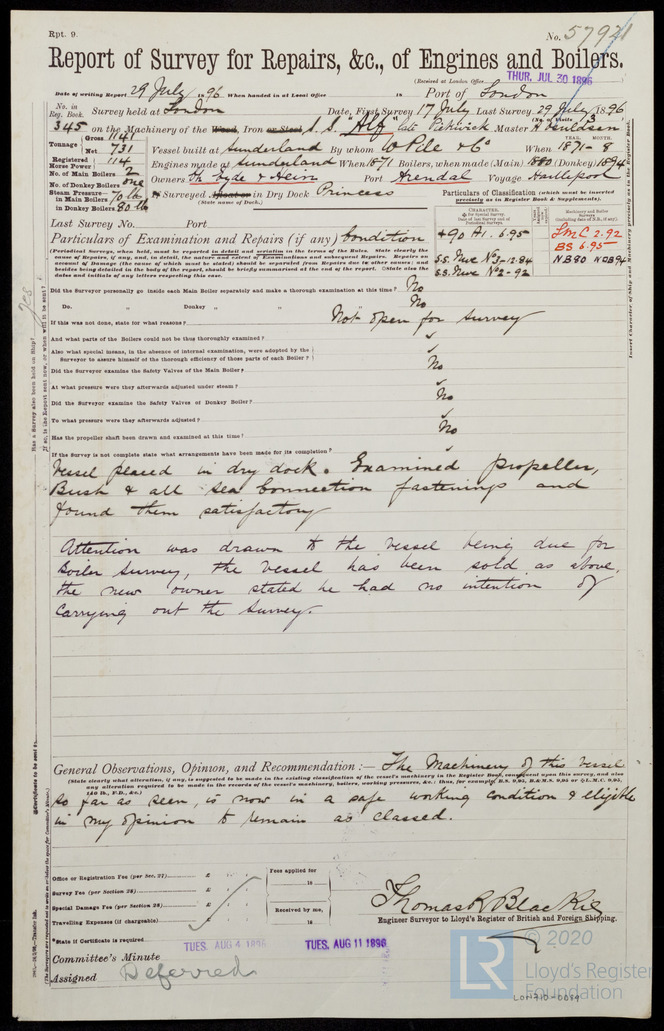 Rpt. 9.
No. 57921
Report of Survey for Repairs, &c., of Engines and Boilers.
(Received at London Office THUR. JUL 30 1896)
Date of writing Report 29 July 1896 When handed in at Local Office 18 Port of London
No. in Reg. Book. Survey held at London Date, First Survey 17 July Last Survey 29 July 1896
(No. of Visits 3)
345 on the Machinery of the Wood, Iron or Steel S.S. "Alf" late Pickwick Master A Knudsen
Tonnage Gross 1141
Net 731
Vessel built at Sunderland By whom W Pile & Co When 1871 - 8
YEAR. MONTH.
Registered Horse Power 114
Engines made at Sunderland When 1871 Boilers, when made (Main) 1880 (Donkey) 1894
No. of Main Boilers 2
No. of Donkey Boilers one
Owners Th. Hyde & Hein Port Arendal Voyage Hartlepool
Steam Pressure in Main Boilers 70 lb
in Donkey Boilers 80 lb
Surveyed Afloat or in Dry Dock Princess
(State name of Dock.)
Particulars of Classification (which must be inserted precisely as in Register Book & Supplements).
Last Survey No. Port
CHARACTER.
Machinery and Boiler Surveys (including date of N.B., if any).
+90 A1. 6.95
LMC 2.92
BS 6.95
S.S. Nwc No3-12.84
NB80 NDB94
S.S. Nwc No2-92
Particulars of Examination and Repairs (if any) Condition
(Periodical Surveys, when held, must be reported in detail and seriatim in the terms of the Rules. State clearly the
cause of Repairs, if any, and, in detail, the nature and extent of Examinations and subsequent Repairs. Repairs on
account of Damage (the cause of which must be stated) should be separated from Repairs due to other causes; and
besides being detailed in the body of the report, should be briefly summarised at the end of the report. State also the
dates and initials of any letters respecting this case.)
Did the Surveyor personally go inside each Main Boiler separately and make a thorough examination at this time? No
Do. " Donkey " " " No
If this was not done, state for what reasons? Not open for survey
And what parts of the Boilers could not be thoroughly examined?
Also what special means, in the absence of internal examination, were adopted by the
Surveyor to assure himself of the thorough efficiency of those parts of each Boiler?
Did the Surveyor examine the Safety Valves of the Main Boiler? No
At what pressure were they afterwards adjusted under steam?
Did the Surveyor examine the Safety Valves of Donkey Boiler? No
To what pressure were they afterwards adjusted?
Has the propeller shaft been drawn and examined at this time? No
If the Survey is not complete state what arrangements have been made for its completion?
Vessel placed in dry dock. Examined propeller,
Bush & all sea Connection fastenings and
found them satisfactory
Attention was drawn to the vessel being due for
Boiler Survey, the vessel has been sold as above,
the new owner stated he had no intention of
carrying out the survey.
General Observations, Opinion, and Recommendation :— The Machinery of this Vessel
(State clearly what alteration, if any, is suggested to be made in the existing classification of the vessel's machinery in the Register Book, consequent upon this survey, and also
any alteration required to be made in the records of the vessel's machinery, boilers, working pressures, &c.; thus, for example, B.S. 9,95, B.&M.S. 9,95 or L.M.C. 9,95,
so far as seen, is now in a safe working condition & eligible
in my opinion to remain as classed.
Office or Registration Fee (per Sec. 27) £
Fees applied for
18
Survey Fee (per Section 28) £
Special Damage Fee (per Section 28) £
Received by me,
Travelling Expenses (if chargeable) £
18
Thomas R Blackie
Engineer Surveyor to Lloyd's Register of British and Foreign Shipping.
*State if Certificate is required
TUES. AUG 4 1896
TUES. AUG 11 1896
Committee's Minute
Assigned Deferred
LR
© 2020
Lloyd's Register
Foundation
LON710-0089